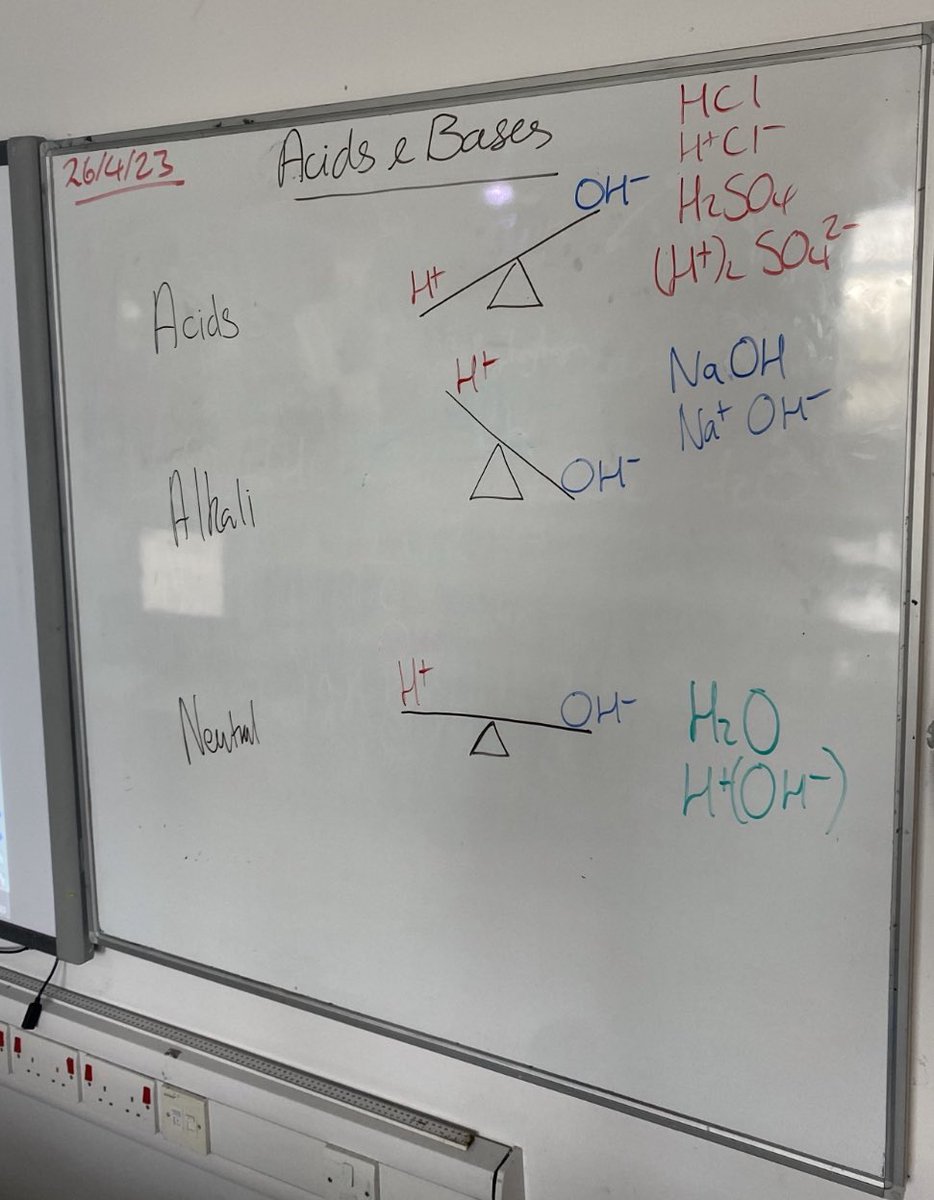 26/4/23
Acids & Bases
HCl
H⁺Cl⁻
H₂SO₄
(H⁺)₂ SO₄²⁻
Acids
H⁺
OH⁻
NaOH
Na⁺ OH⁻
Alkali
H⁺
OH⁻
Neutral
H⁺
OH⁻
H₂O
H⁺(OH⁻)